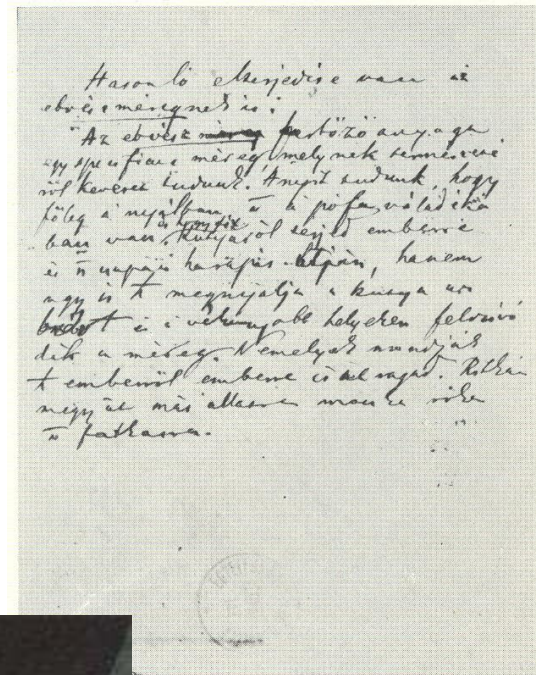 Hasonló elterjedése van az
ebvész méregnek is:
Az ebvész méreg fertőző anyaga
egy specificus méreg, melynek természeté
ről keveset tudunk. Annyit tudunk, hogy
főleg a nyálban és a pofa váladéká
ban van, kutyáról terjed emberre
és n harapás útján, hanem
úgy is t megnyalja a kutya az
embert és a vékonyabb helyeken felszívó
dik a méreg. Némelyek mondják
t emberről emberre is ragad. Ritkán
megy át más állatra macska róka
n farkasra.